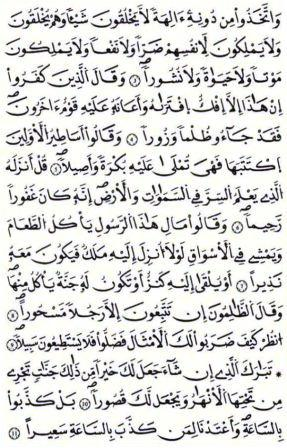 وَاتَّخَذُوا مِنْ دُونِهِ آلِهَةً لَا يَخْلُقُونَ شَيْئًا وَهُمْ يُخْلَقُونَ
وَلَا يَمْلِكُونَ لِأَنْفُسِهِمْ ضَرًّا وَلَا نَفْعًا وَلَا يَمْلِكُونَ
مَوْتًا وَلَا حَيَوٰةً وَلَا نُشُورًا ٣ وَقَالَ الَّذِينَ كَفَرُوا
إِنْ هَٰذَا إِلَّا إِفْكٌ افْتَرَاهُ وَأَعَانَهُ عَلَيْهِ قَوْمٌ آخَرُونَ
فَقَدْ جَاءُوا ظُلْمًا وَزُورًا ٤ وَقَالُوا أَسَاطِيرُ الْأَوَّلِينَ
اكْتَتَبَهَا فَهِيَ تُمْلَىٰ عَلَيْهِ بُكْرَةً وَأَصِيلًا ٥ قُلْ أَنْزَلَهُ
الَّذِي يَعْلَمُ السِّرَّ فِي السَّمَوَاتِ وَالْأَرْضِ إِنَّهُ كَانَ غَفُورًا
رَحِيمًا ٦ وَقَالُوا مَالِ هَٰذَا الرَّسُولِ يَأْكُلُ الطَّعَامَ
وَيَمْشِي فِي الْأَسْوَاقِ لَوْلَا أُنْزِلَ إِلَيْهِ مَلَكٌ فَيَكُونَ مَعَهُ
نَذِيرًا ٧ أَوْ يُلْقَىٰ إِلَيْهِ كَنْزٌ أَوْ تَكُونُ لَهُ جَنَّةٌ يَأْكُلُ مِنْهَا
وَقَالَ الظَّالِمُونَ إِنْ تَتَّبِعُونَ إِلَّا رَجُلًا مَسْحُورًا ٨
انْظُرْ كَيْفَ ضَرَبُوا لَكَ الْأَمْثَالَ فَضَلُّوا فَلَا يَسْتَطِيعُونَ سَبِيلًا ٩
تَبَارَكَ الَّذِي إِنْ شَاءَ جَعَلَ لَكَ خَيْرًا مِنْ ذَٰلِكَ جَنَّاتٍ تَجْرِي
مِنْ تَحْتِهَا الْأَنْهَارُ وَيَجْعَلْ لَكَ قُصُورًا ١٠ بَلْ كَذَّبُوا
بِالسَّاعَةِ وَأَعْتَدْنَا لِمَنْ كَذَّبَ بِالسَّاعَةِ سَعِيرًا ١١